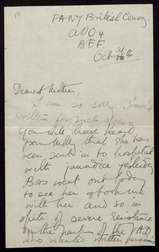 FANY British Convoy
APO 4
B.E.F.
Oct
Dearest Mother,
I am so sorry I haven't
written for such ages.
You will have heard
from Molly that she has
been sent in to hospital
with jaundice yesterday
Bros went out today
to see her & took
with her and so in
spite of severe resistance
on the part of the VAD
who wanted